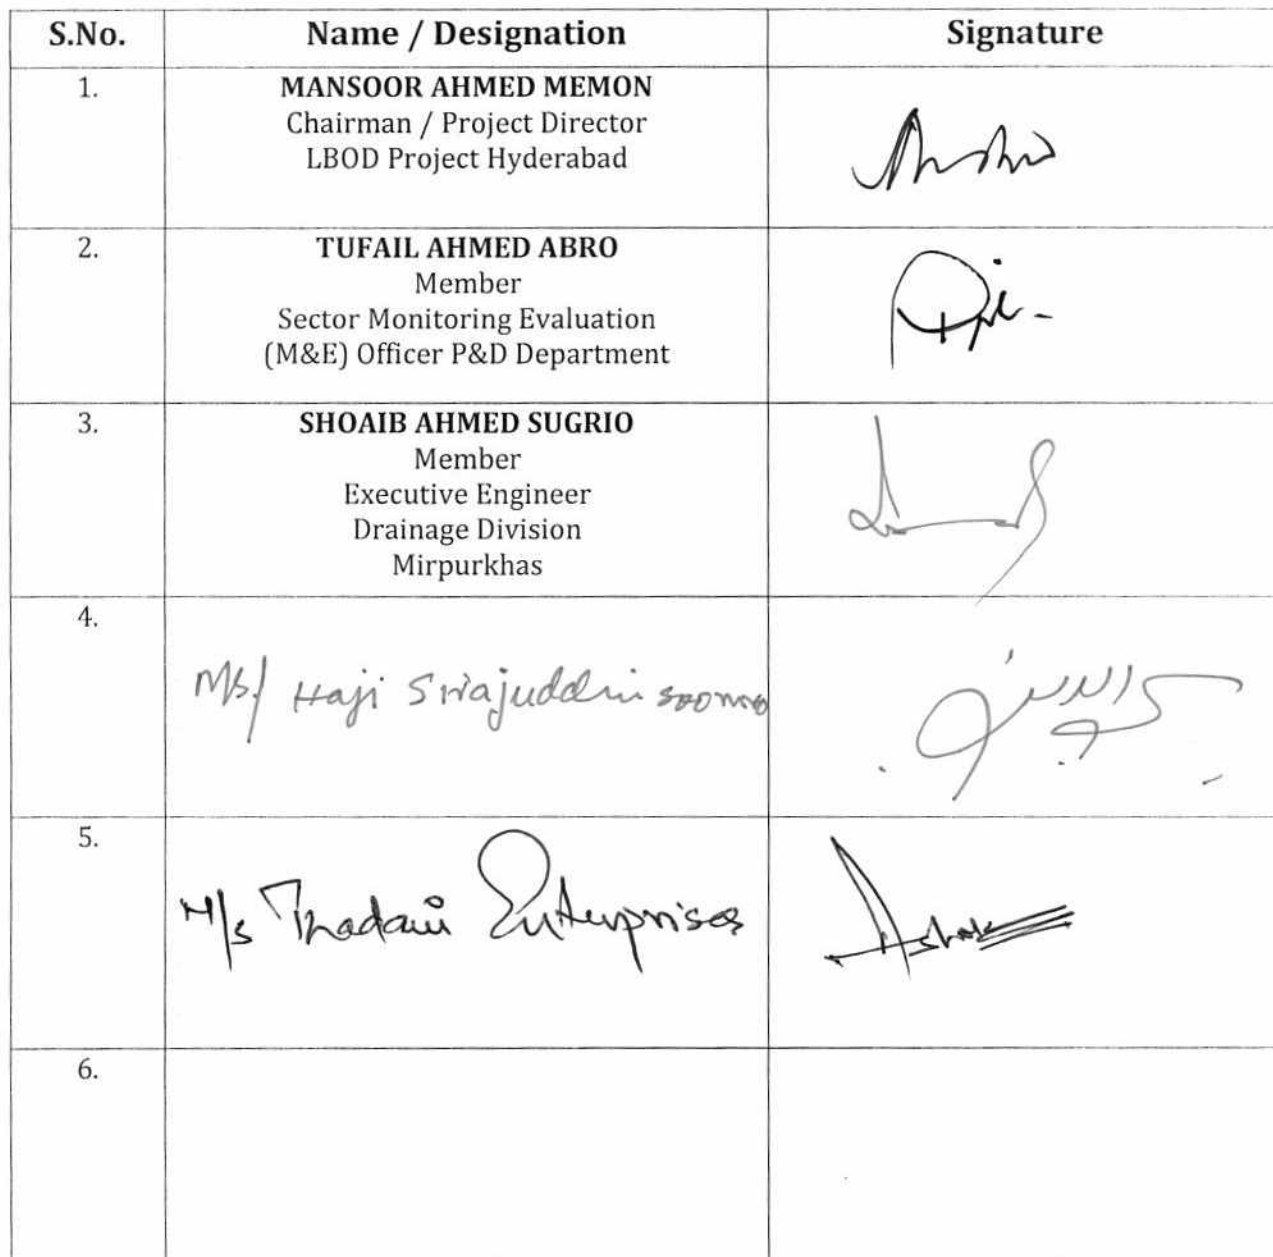 S.No. Name / Designation Signature
1. MANSOOR AHMED MEMON
Chairman / Project Director
LBOD Project Hyderabad
2. TUFAIL AHMED ABRO
Member
Sector Monitoring Evaluation
(M&E) Officer P&D Department
3. SHOAIB AHMED SUGRIO
Member
Executive Engineer
Drainage Division
Mirpurkhas
4.
M/s/ Haji Sirajuddin soomro
5.
M/s Thadani Enterprises Ashok
6.